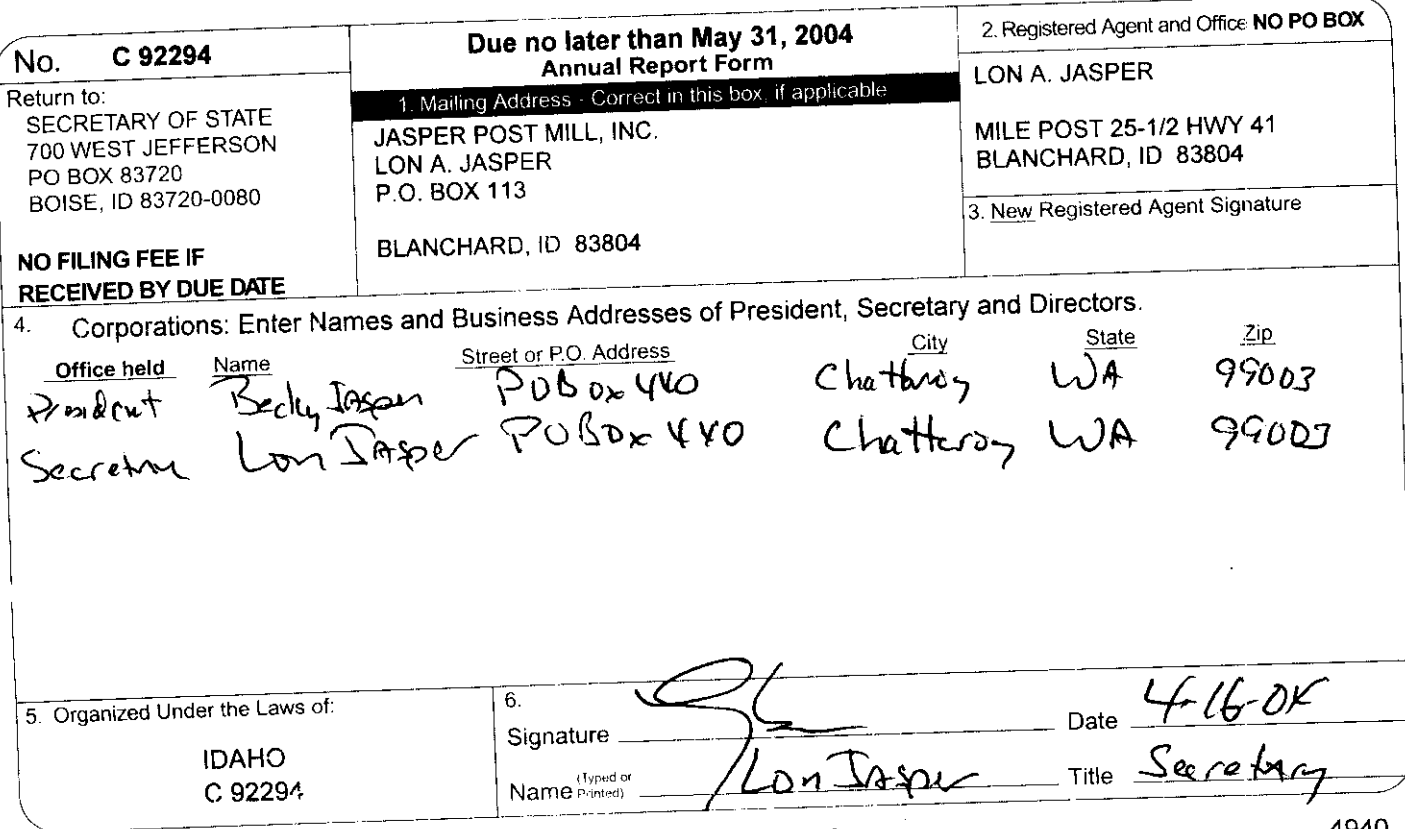 No. C 92294
Return to:
SECRETARY OF STATE
700 WEST JEFFERSON
PO BOX 83720
BOISE, ID 83720-0080
NO FILING FEE IF
RECEIVED BY DUE DATE
Due no later than May 31, 2004
Annual Report Form
1. Mailing Address - Correct in this box, if applicable
JASPER POST MILL, INC.
LON A. JASPER
P.O. BOX 113
BLANCHARD, ID 83804
2. Registered Agent and Office NO PO BOX
LON A. JASPER
MILE POST 25-1/2 HWY 41
BLANCHARD, ID 83804
3. New Registered Agent Signature
4. Corporations: Enter Names and Business Addresses of President, Secretary and Directors.
Office held Name Street or P.O. Address City State Zip
President Becky Jasper PO Box 440 Chattaroy WA 99003
Secretary Lon Jasper PO Box 440 Chattaroy WA 99003
5. Organized Under the Laws of:
IDAHO
C 92294
6.
Signature Date 4-16-04
Name (Typed or Printed) Lon Jasper Title Secretary
4940